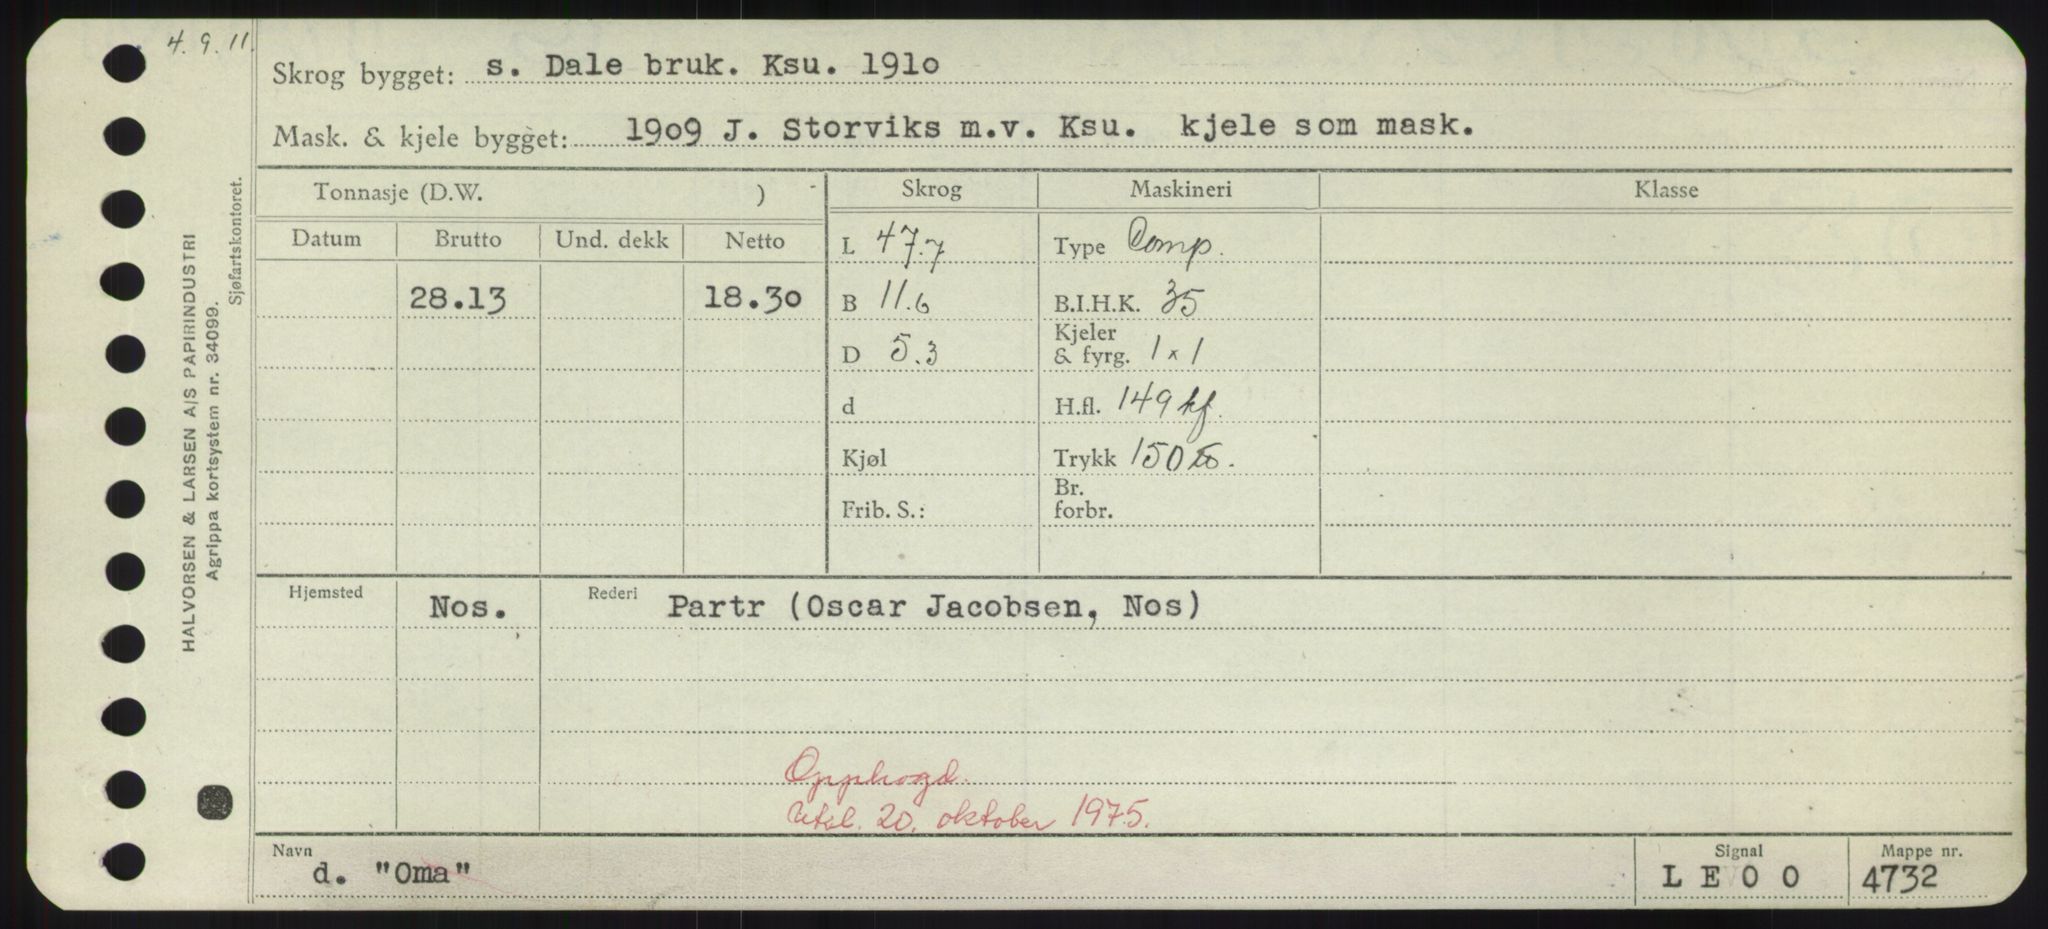 4.9.11.
Skrog bygget: s. Dale bruk. Ksu. 1910
Mask. & kjele bygget: 1909 J. Storviks m.v. Ksu. kjele som mask.
Tonnasje (D.W. )
Skrog
Maskineri
Klasse
Datum
Brutto
Und. dekk
Netto
28.13
18.30
L 47.7
B 11.6
D 5.3
d
Kjøl
Frib. S.:
Type Comp.
B.I.H.K. 35
Kjeler
& fyrg. 1 x 1
H.fl. 149 kf.
Trykk 150
Br.
forbr.
Hjemsted Nos.
Rederi Partr (Oscar Jacobsen, Nos)
Opphogd.
Utsl. 20. oktober 1975.
Navn
d. "Oma"
Signal
L E O O
Mappe nr.
4732
HALVORSEN & LARSEN A/S PAPIRINDUSTRI
Agrippa kortsystem nr. 34099.
Sjøfartskontoret.